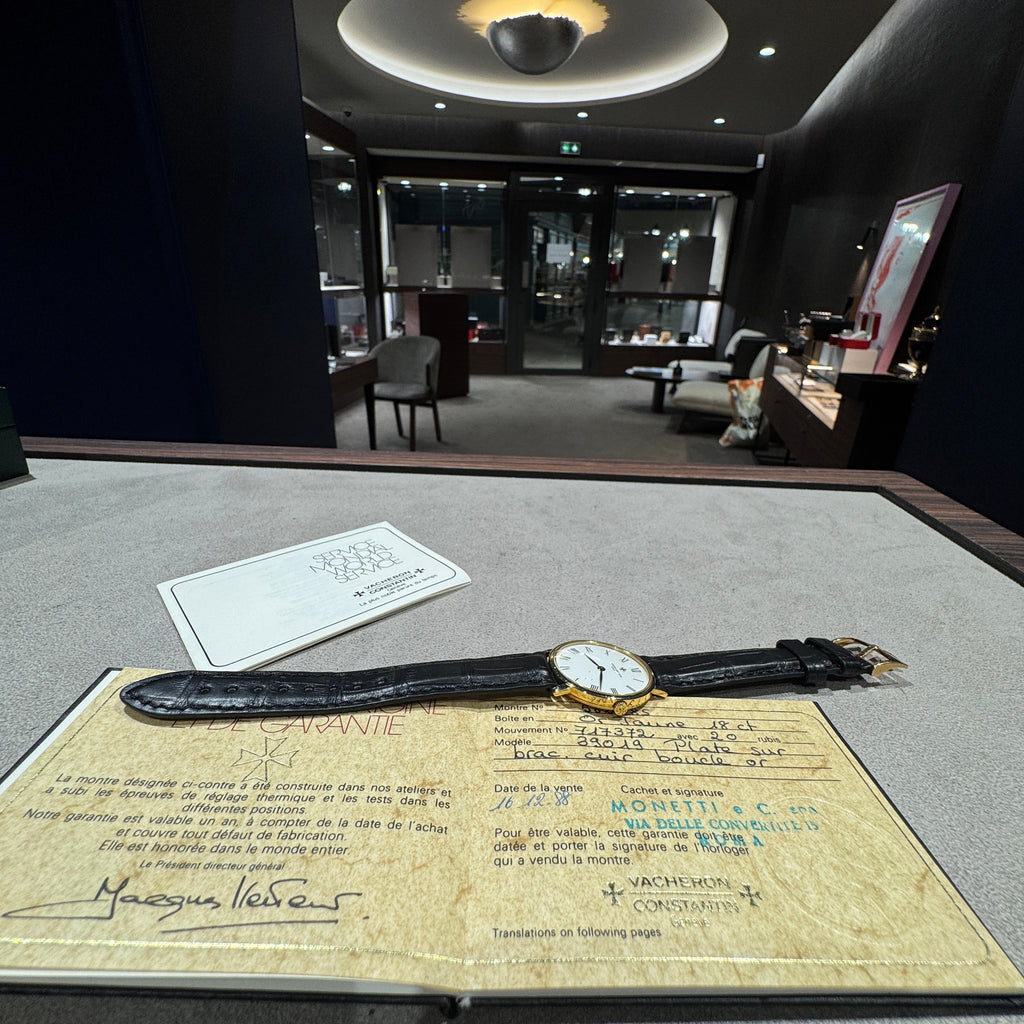 SERVICE
MONDIAL
WORLD
SERVICE
VACHERON
CONSTANTIN
Genève
La plus noble parure du temps
ET DE GARANTIE
La montre désignée ci-contre a été construite dans nos ateliers et
a subi les épreuves de réglage thermique et les tests dans les
différentes positions.
Notre garantie est valable un an, à compter de la date de l'achat
et couvre tout défaut de fabrication.
Elle est honorée dans le monde entier.
Le Président directeur général
Montre Nº
Boîte en Or Jaune 18 ct
Mouvement Nº 717372 avec 20 rubis
Modèle 39019 Plate sur
brac. cuir boucle or
Date de la vente Cachet et signature
16 12 88
MONETTI e C.
VIA DELLE CONVERTITE
ROMA
Pour être valable, cette garantie doit être
datée et porter la signature de l'horloger
qui a vendu la montre.
VACHERON
CONSTANTIN
Genève
Translations on following pages